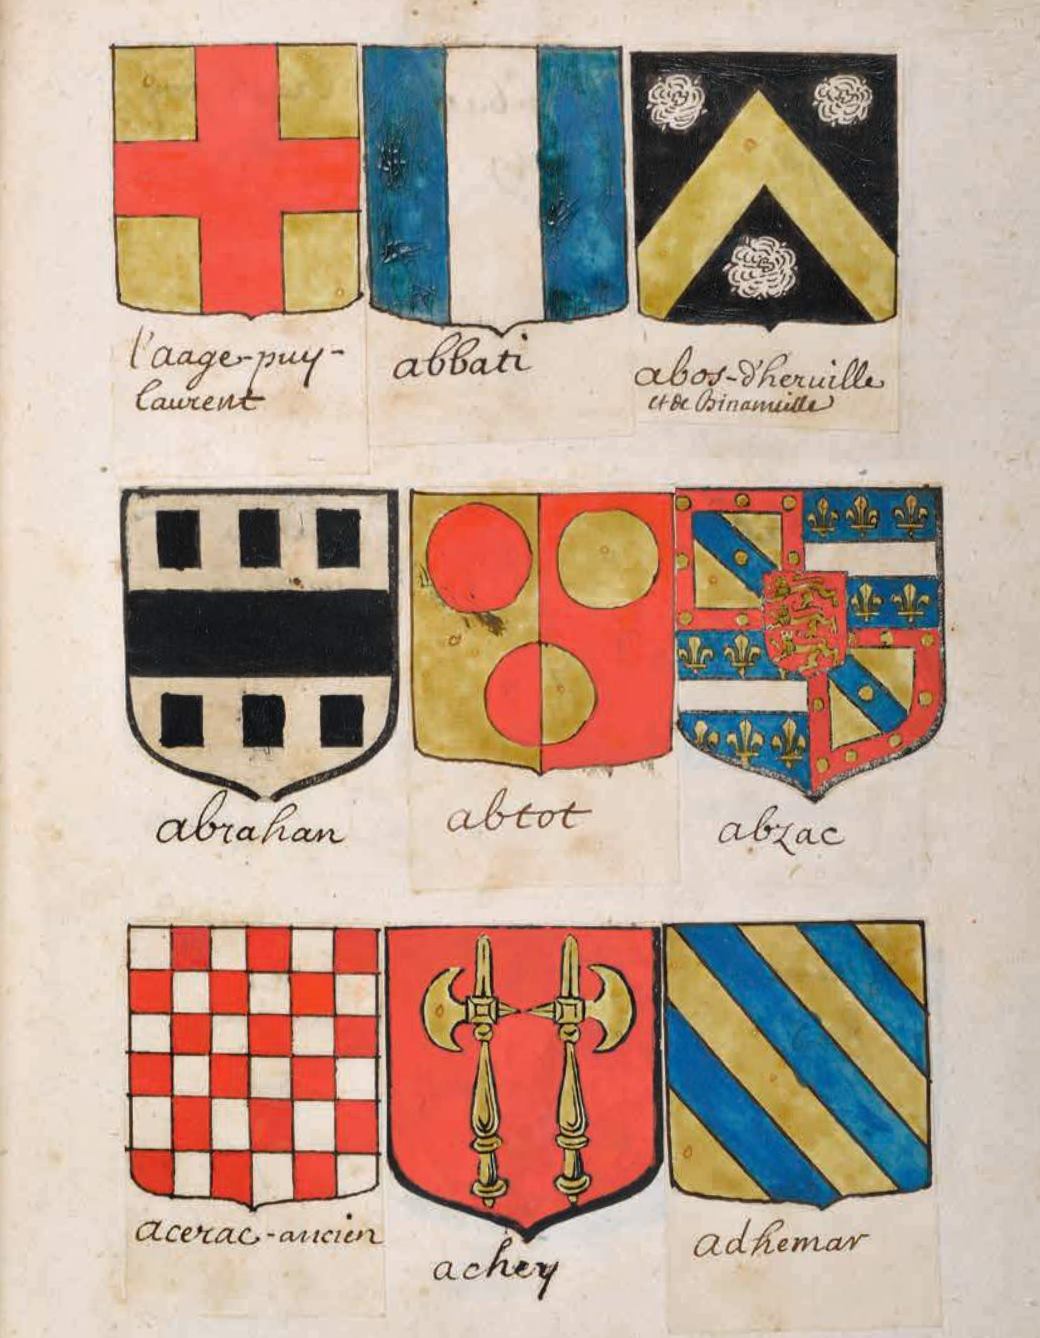 l'aage-puy-
laurent
abbati
abos-d'heruille
et de Binanuille
abrahan
abtot
abzac
acerac-ancien
achey
adhemar